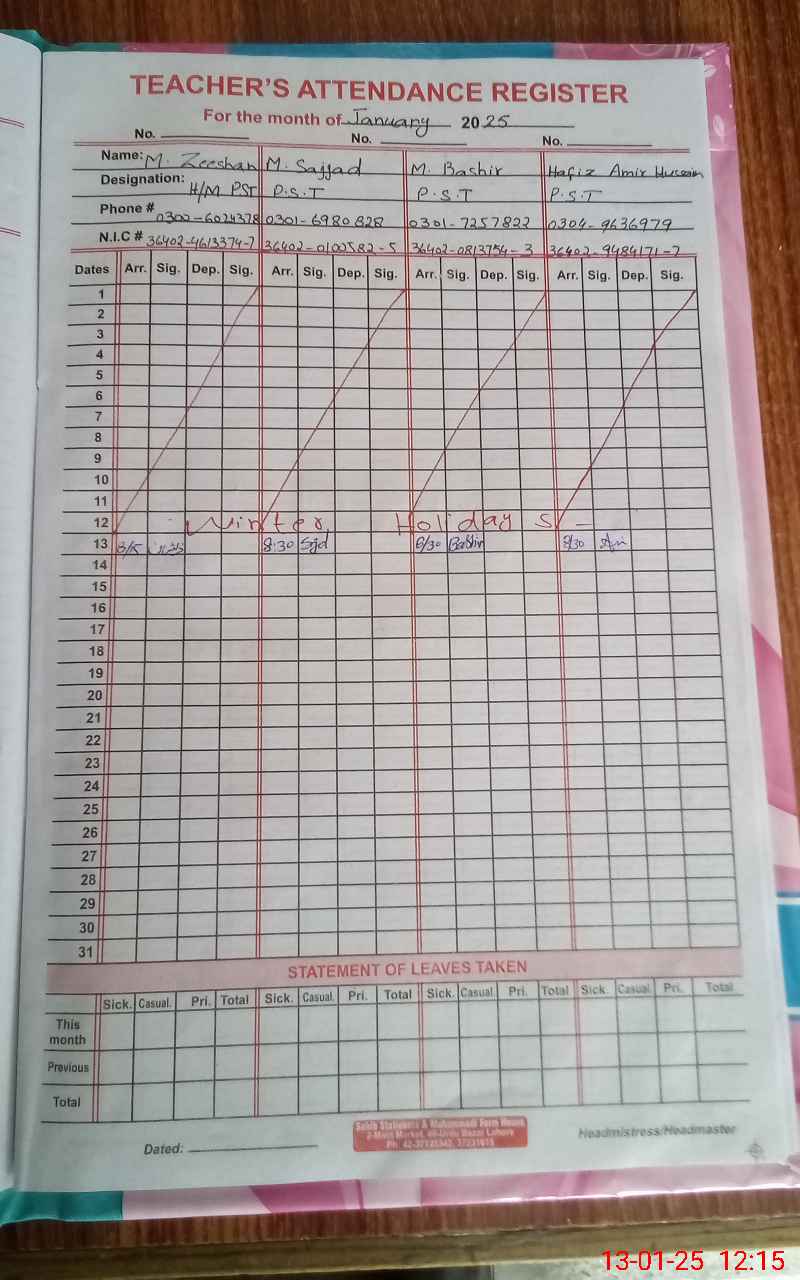 TEACHER'S ATTENDANCE REGISTER
For the month of January 2025
No. No. No.
Name: M. Zeeshan M. Sajjad M. Bashir Hafiz Amir Hussain
Designation: H/M PST P.S.T P.S.T P.S.T
Phone # 0300-6024378 0301-6980828 0301-7257822 0304-9636979
N.I.C # 36402-4613374-7 36402-0100582-5 36402-0813754-3 36402-9484171-7
Dates Arr. Sig. Dep. Sig. Arr. Sig. Dep. Sig. Arr. Sig. Dep. Sig. Arr. Sig. Dep. Sig.
1
2
3
4
5
6
7
8
9
10
11
12 Winter Holidays
13 8:30 Sjd 8/30 Bashir 8/30
14
15
16
17
18
19
20
21
22
23
24
25
26
27
28
29
30
31
STATEMENT OF LEAVES TAKEN
Sick. Casual. Pri. Total Sick. Casual. Pri. Total Sick. Casual. Pri. Total Sick. Casual. Pri. Total
This
month
Previous
Total
Dated: Headmistress/Headmaster
Sahib Stationers & Muhammadi Form House
Market, Urdu Bazar Lahore
13-01-25 12:15